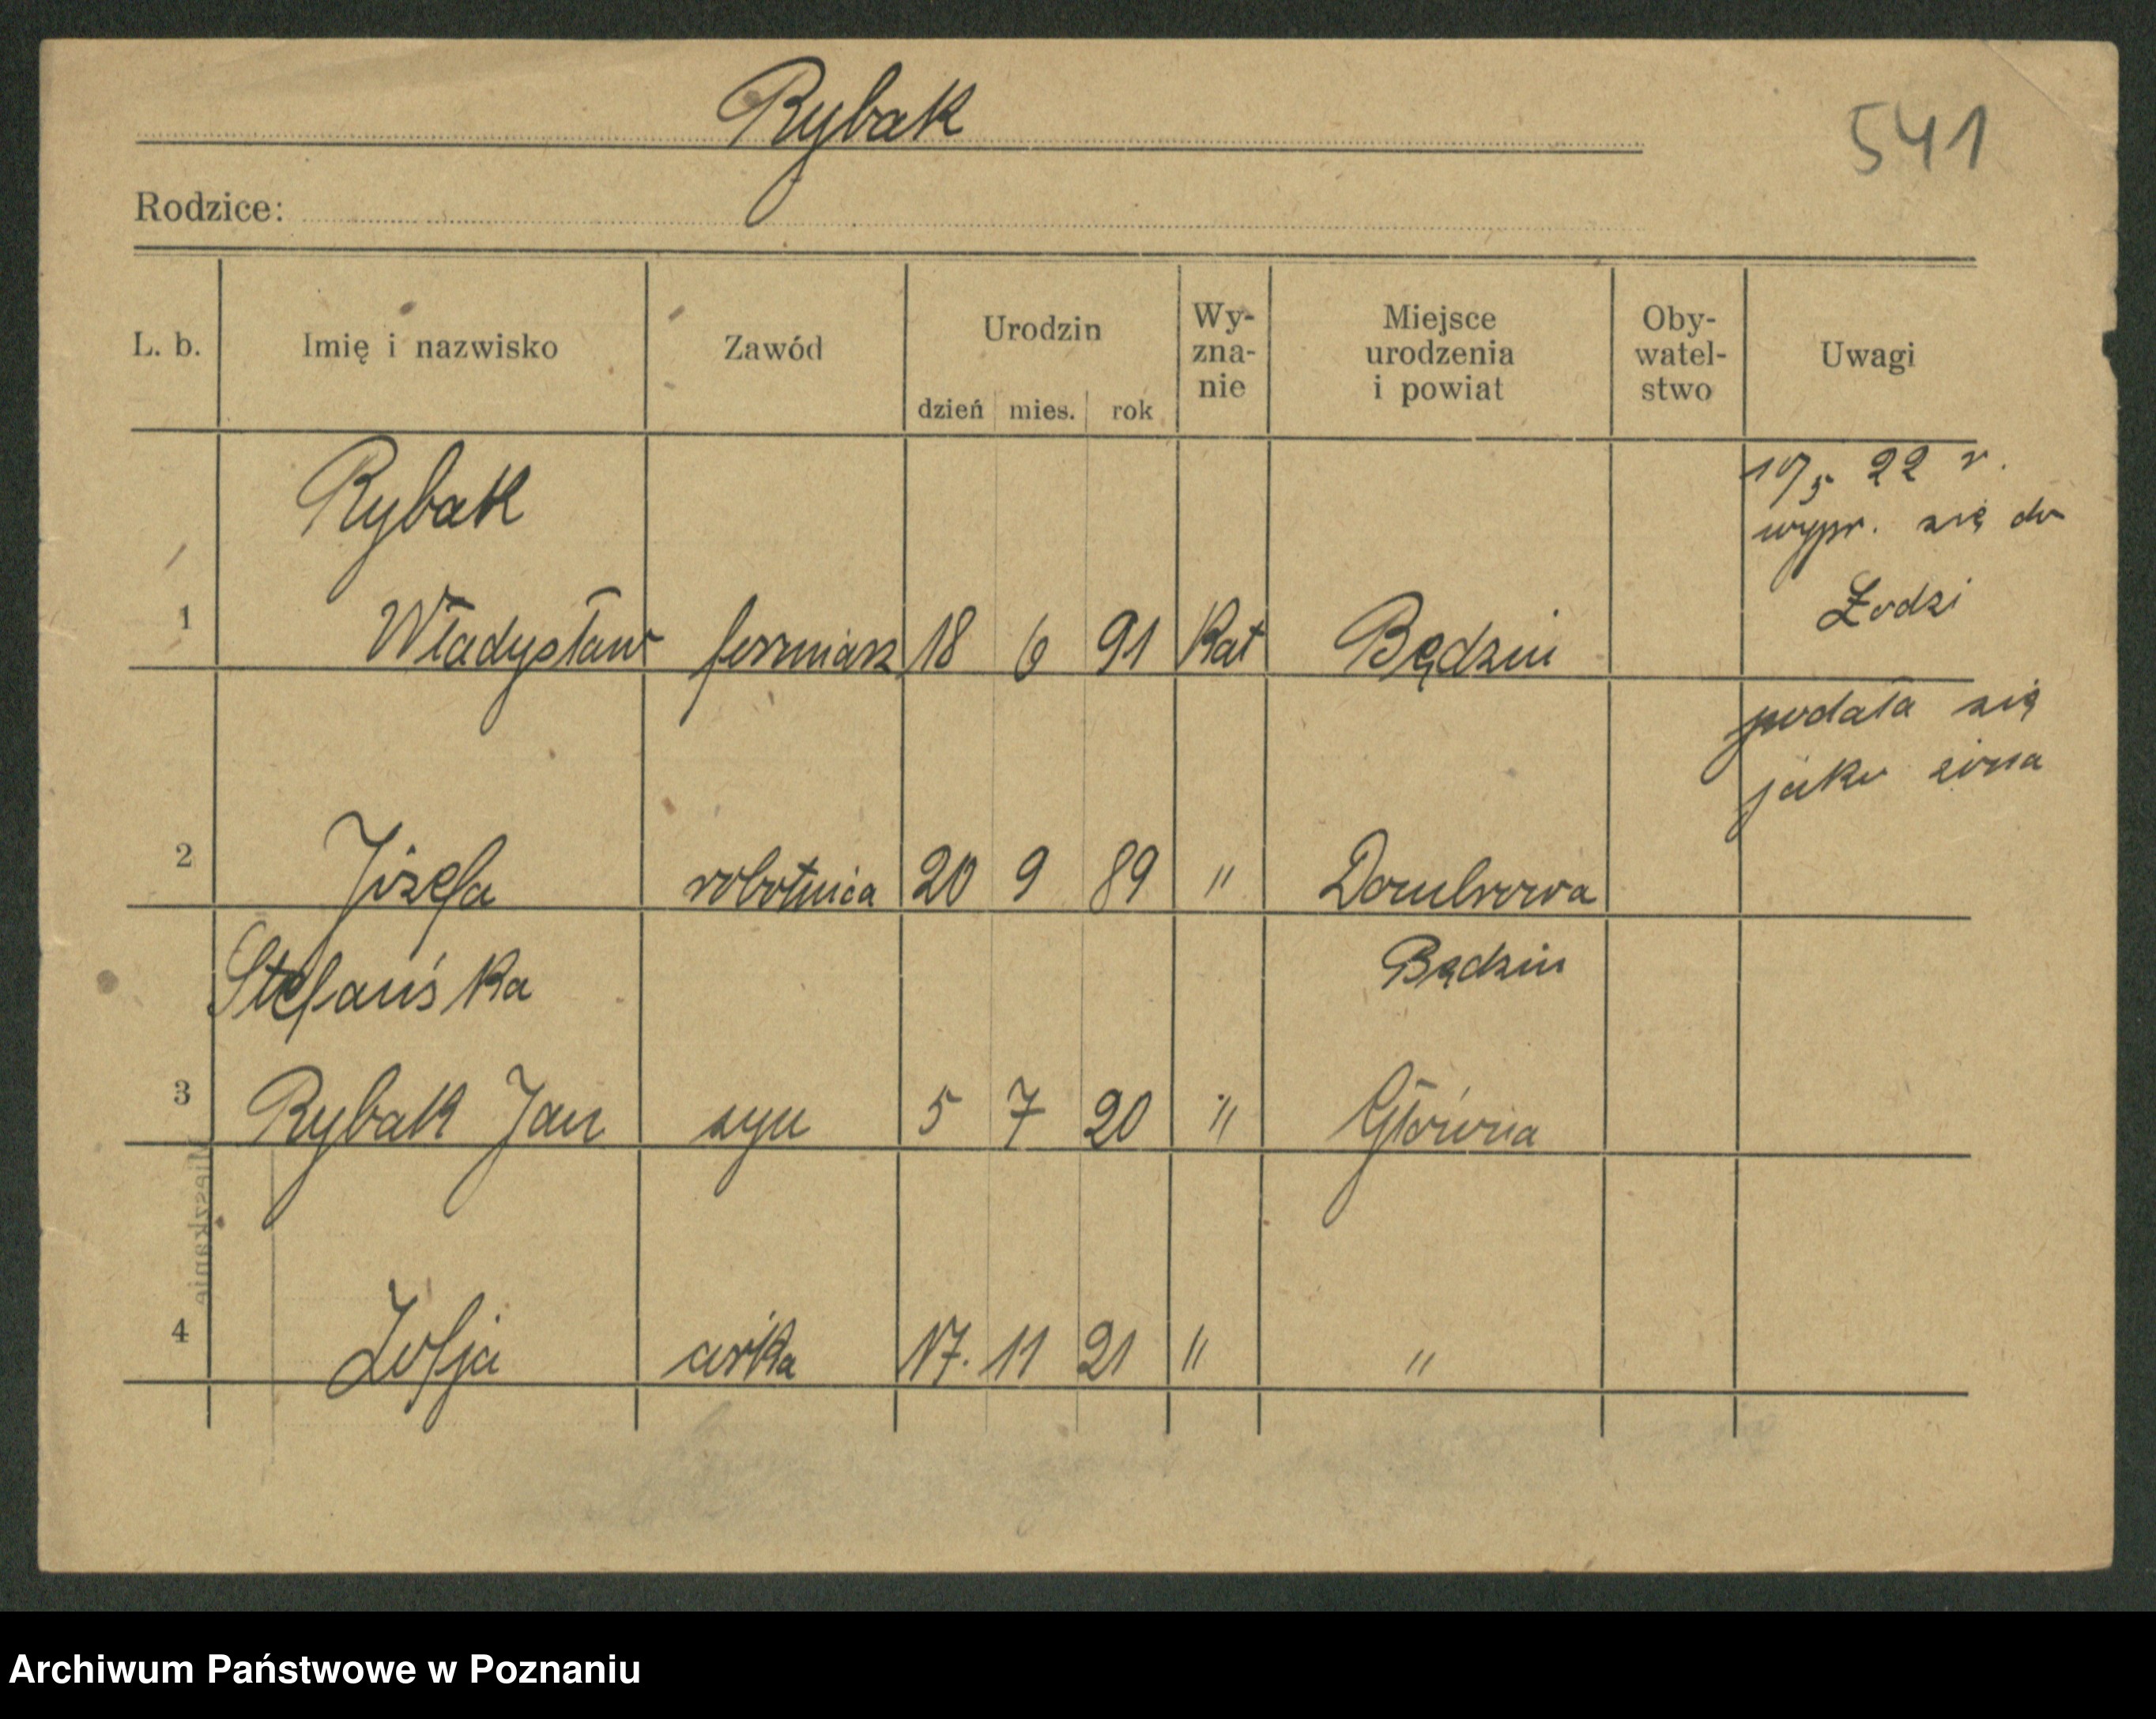 Rybak
541
Rodzice:
L. b. Imię i nazwisko Zawód Urodzin dzień mies. rok Wy-zna-nie Miejsce urodzenia i powiat Oby-watel-stwo Uwagi
Rybak
10/5 22 r.
wypr. się do
Łodzi
1 Władysław 18 6 91 Kat Będzin
podała się
jako żona
2 Józefa robotnica 20 9 89 " Dombrowa
Stefańska Będzin
3 Rybak Jan syn 5 7 20 " Główna
Mieszkanie
4 Zofja córka 17. 11 21 " "
Archiwum Państwowe w Poznaniu